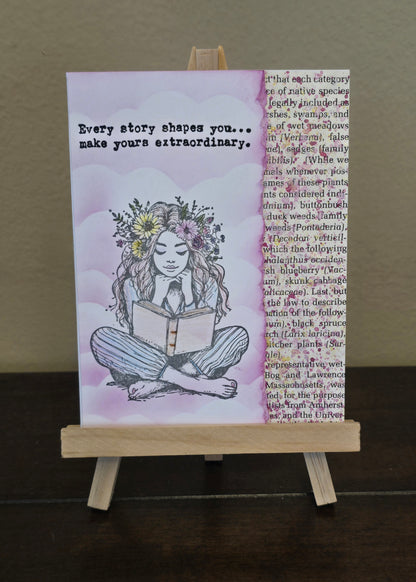 Every story shapes you...
make yours extraordinary.
that each category
ce of native species
legally included as
rshes, swamps, and
e of wet meadows
(Verbena), false
sedges (family
While we
nels whenever pos-
ames of these plants
nts considered
buttonbush
duck weeds (family
weeds (Pontederia),
(Decodon verticil-
which the following
occiden-
sh blueberry (Vac-
um), skunk cabbage
Last, but
the law to describe
sation of the follow-
sum), black spruce
rch (Larix laricina),
itcher plants (Sar-
ble)
representative wet-
Bog and Lawrence
Massachusetts, was
fod, for the purpose
from Amherst,
as, and the Univer-